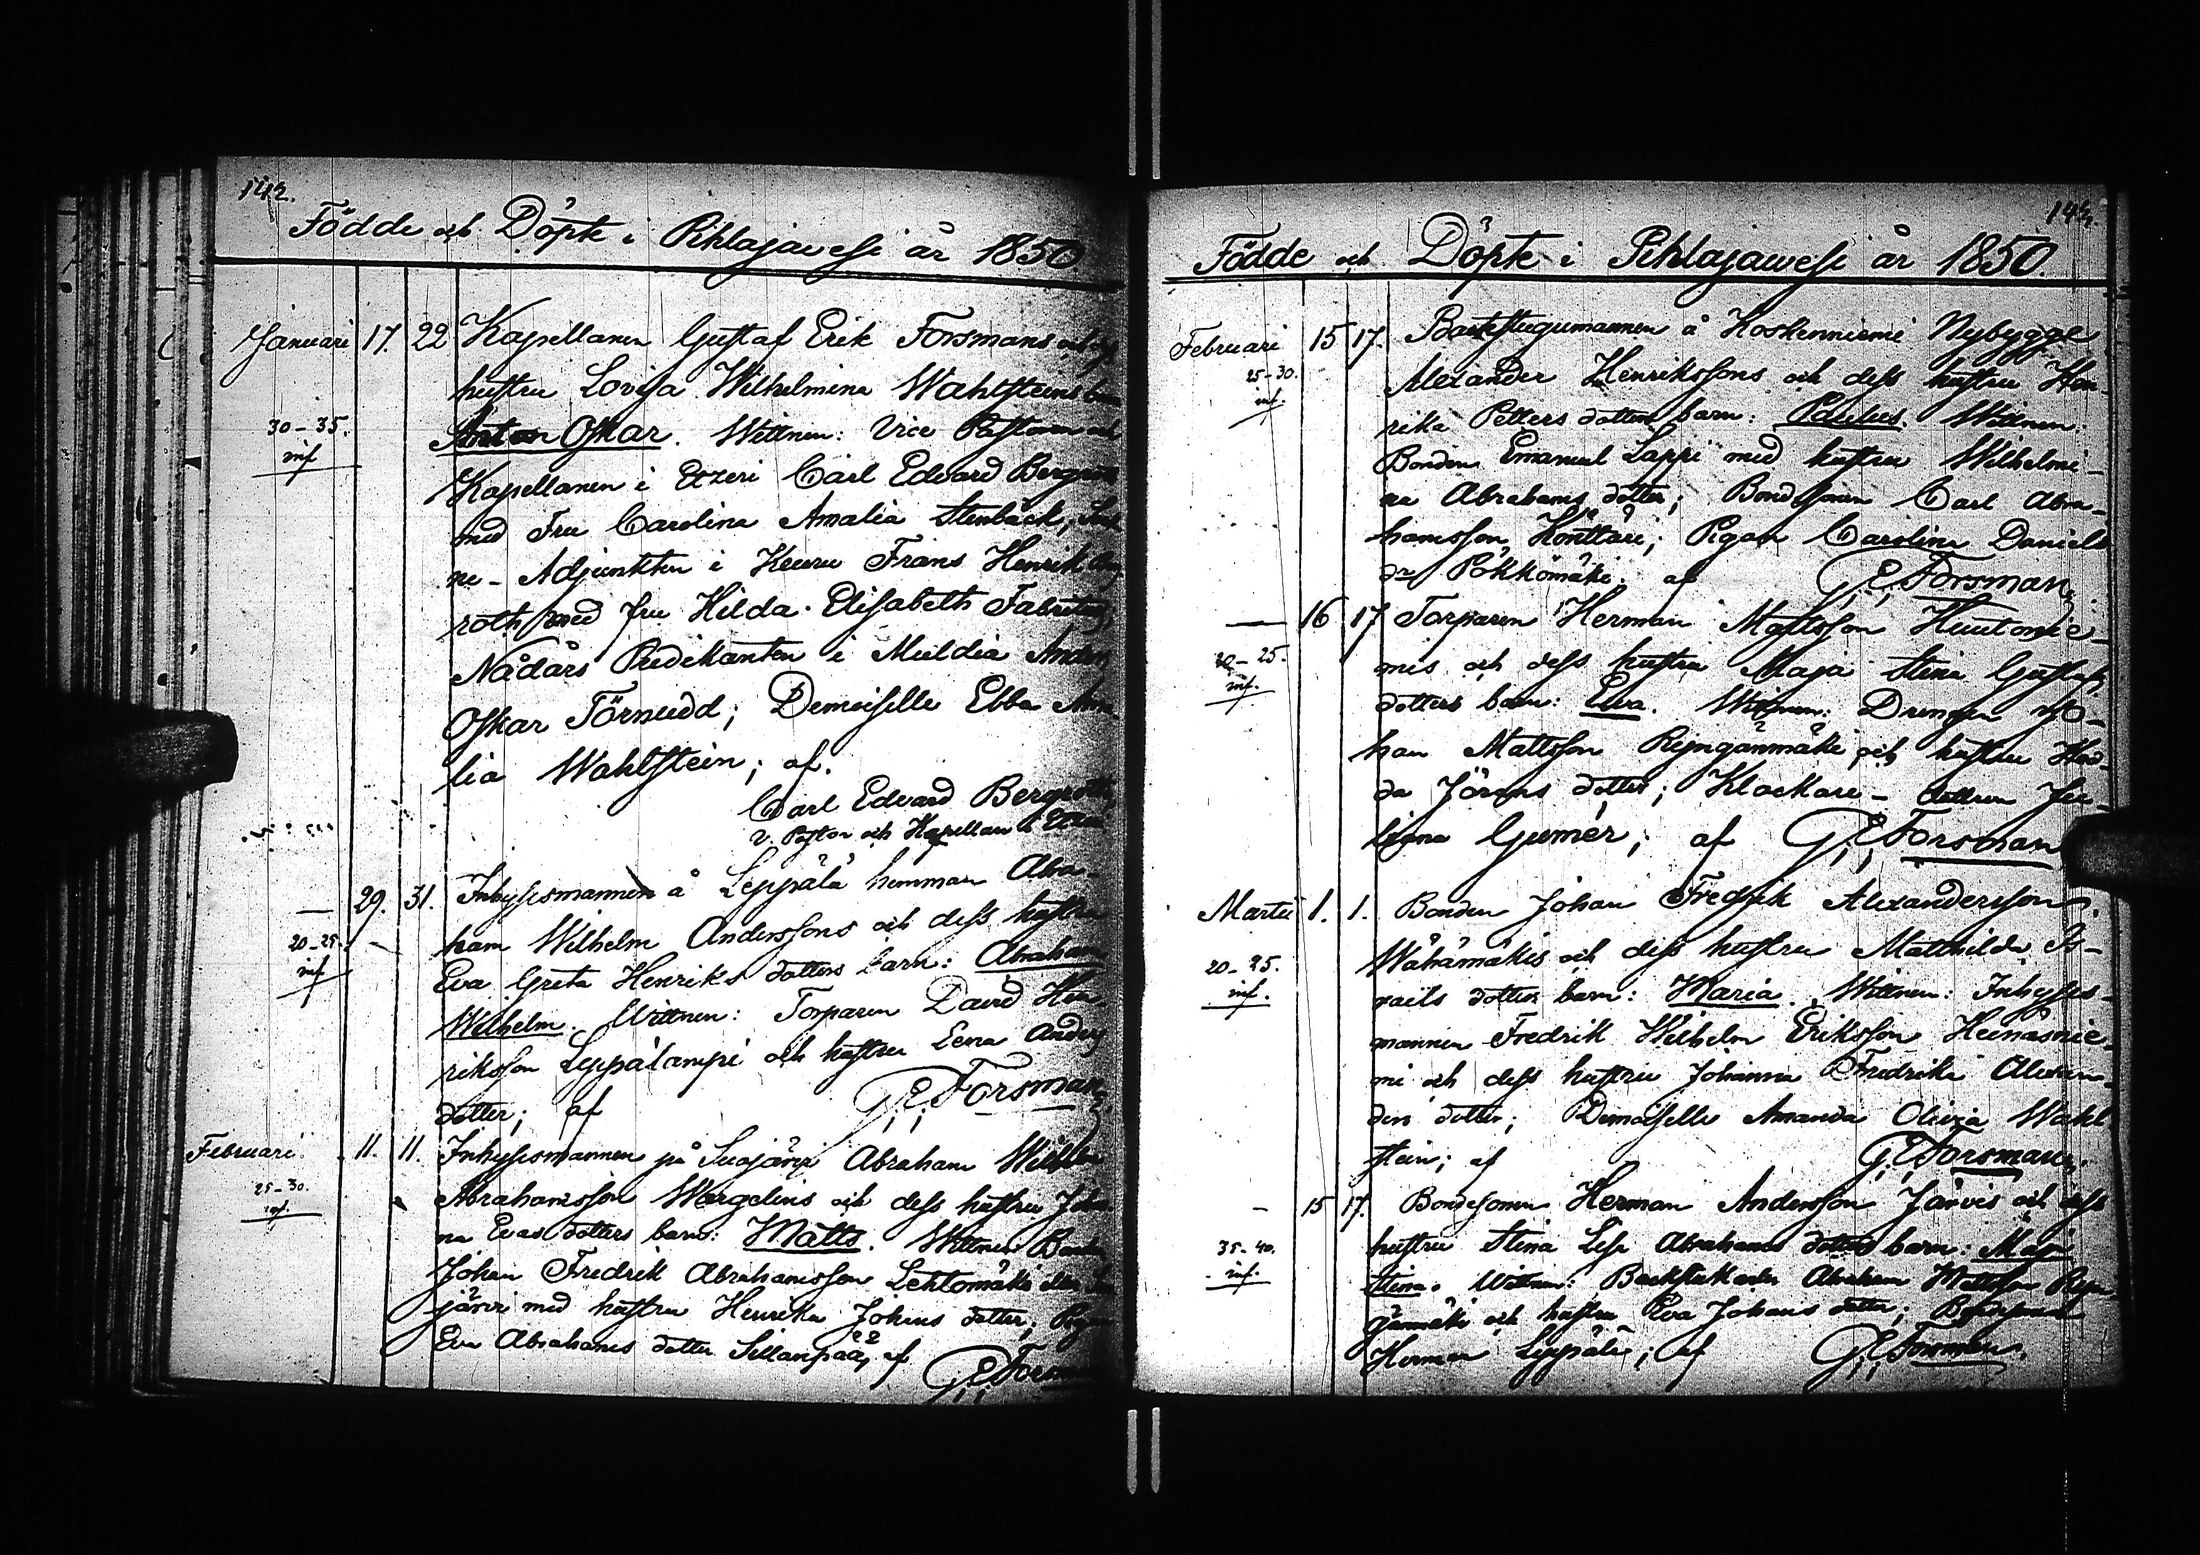 142.
Födde och Döpte i Pihlajawesi år 1850.
Januari 17. 22 Kapellanen Gustaf Erik Forsmans och
hustru Lovisa Wilhelmina Wahlsteins barn
30-35. Anton Oskar. Wittnen: Vice Pastorn och
inf Kapellanen i Etzeri Carl Edvard Bergroth
med Fru Carolina Amalia Stenbäck;
ne-Adjunkten i Keuru Frans Henrik Berg
roth med fru Hilda Elisabeth Fabritius;
Nådårs Predikanten i Muldia Anders
Oskar Törnudd; Demoiselle Ebba Ama
lia Wahlstein; af.
Carl Edvard Bergroth,
v. Pastor och Kapellan i Etzeri
— 29. 31. Inhysesmannen å Leppälä hemman Abra-
20-25. ham Wilhelm Anderssons och dess hustru
inf Eva Greta Henriks dotters barn: Abraham
Wilhelm. Wittnen: Torparen David Hen
riksson Leppälampi och hustru Lena Anders
dotter; af G. E. Forsman.
Februari 11. 11. Inhysesmannen på Suojärvi Abraham Wilhelm
25-30. Abrahamsson Wergelins och dess hustru Johan
inf. na Evas dotters barn: Matts. Wittnen Bonden
Johan Fredrik Abrahamsson Lehtomäki
järvi med hustru Henrika Johans dotter; Pigan
Eva Abrahams dotter Sillanpää, af
G. E. Forsman
143.
Födde och Döpte i Pihlajawesi år 1850.
Februari 15 17. Backstugumannen å Koskenniemi Nybygge
25-30. Alexander Henrikssons och dess hustru Hen-
inf. rika Petters dotters barn: Paulus. Wittnen:
Bonden Emanuel Lappi med hustru Wilhelmi-
na Abrahams dotter; Bondsonen Carl Abra-
hamsson Könttäri; Pigan Carolina Daniels
dr Pökkömäki. af G. E. Forsman
— 16 17 Torparen Herman Mattsson Huutonie-
20-25. mis och dess hustru Maja Stina Gustafs
inf. dotters barn: Eva. Wittnen: Drengen Jo-
han Mattsson Ryngänmäki och hustru Hed-
da Görans dotter; Klockare-dottren Ju-
liana Gumér; af G. E. Forsman
Martii 1. 1. Bonden Johan Fredrik Alexandersson
Wähämäkis och dess hustru Matthilda Is-
20-25. rails dotters barn: Maria. Wittnen: Inhyses-
inf. mannen Fredrik Wilhelm Eriksson Heinäsnie-
mi och dess hustru Johanna Fredrika Alexan-
ders dotter; Demoiselle Amanda Olivia Wahl
stein; af G. E. Forsman.
— 15 17. Bondesonen Herman Andersson Järvis och dess
35-40. hustru Stina Lisa Abrahams dotters barn: Maja
inf. Stina. Wittnen: Backstukarlen Abraham Mattsson Ryn
gänmäki och hustru Eva Johans dotter;
Herman Leppälä; af G. E. Forsman.